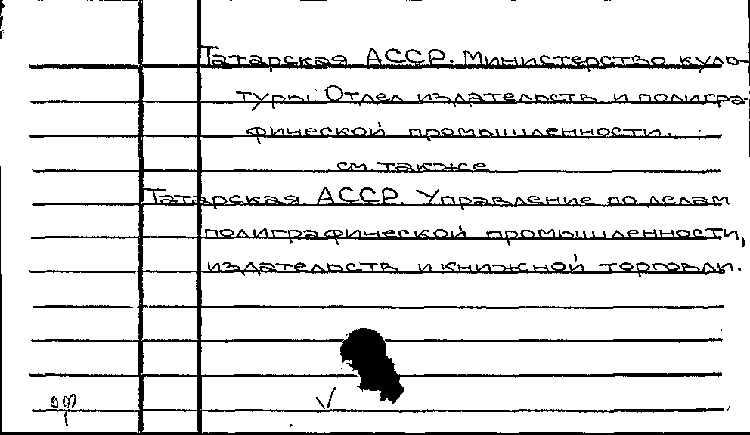 Татарская АССР. Министерство куль-
туры. Отдел издательств и полигра-
фической промышленности.
см. также
Татарская АССР. Управление по делам
полиграфической промышленности,
издательств и книжной торговли.